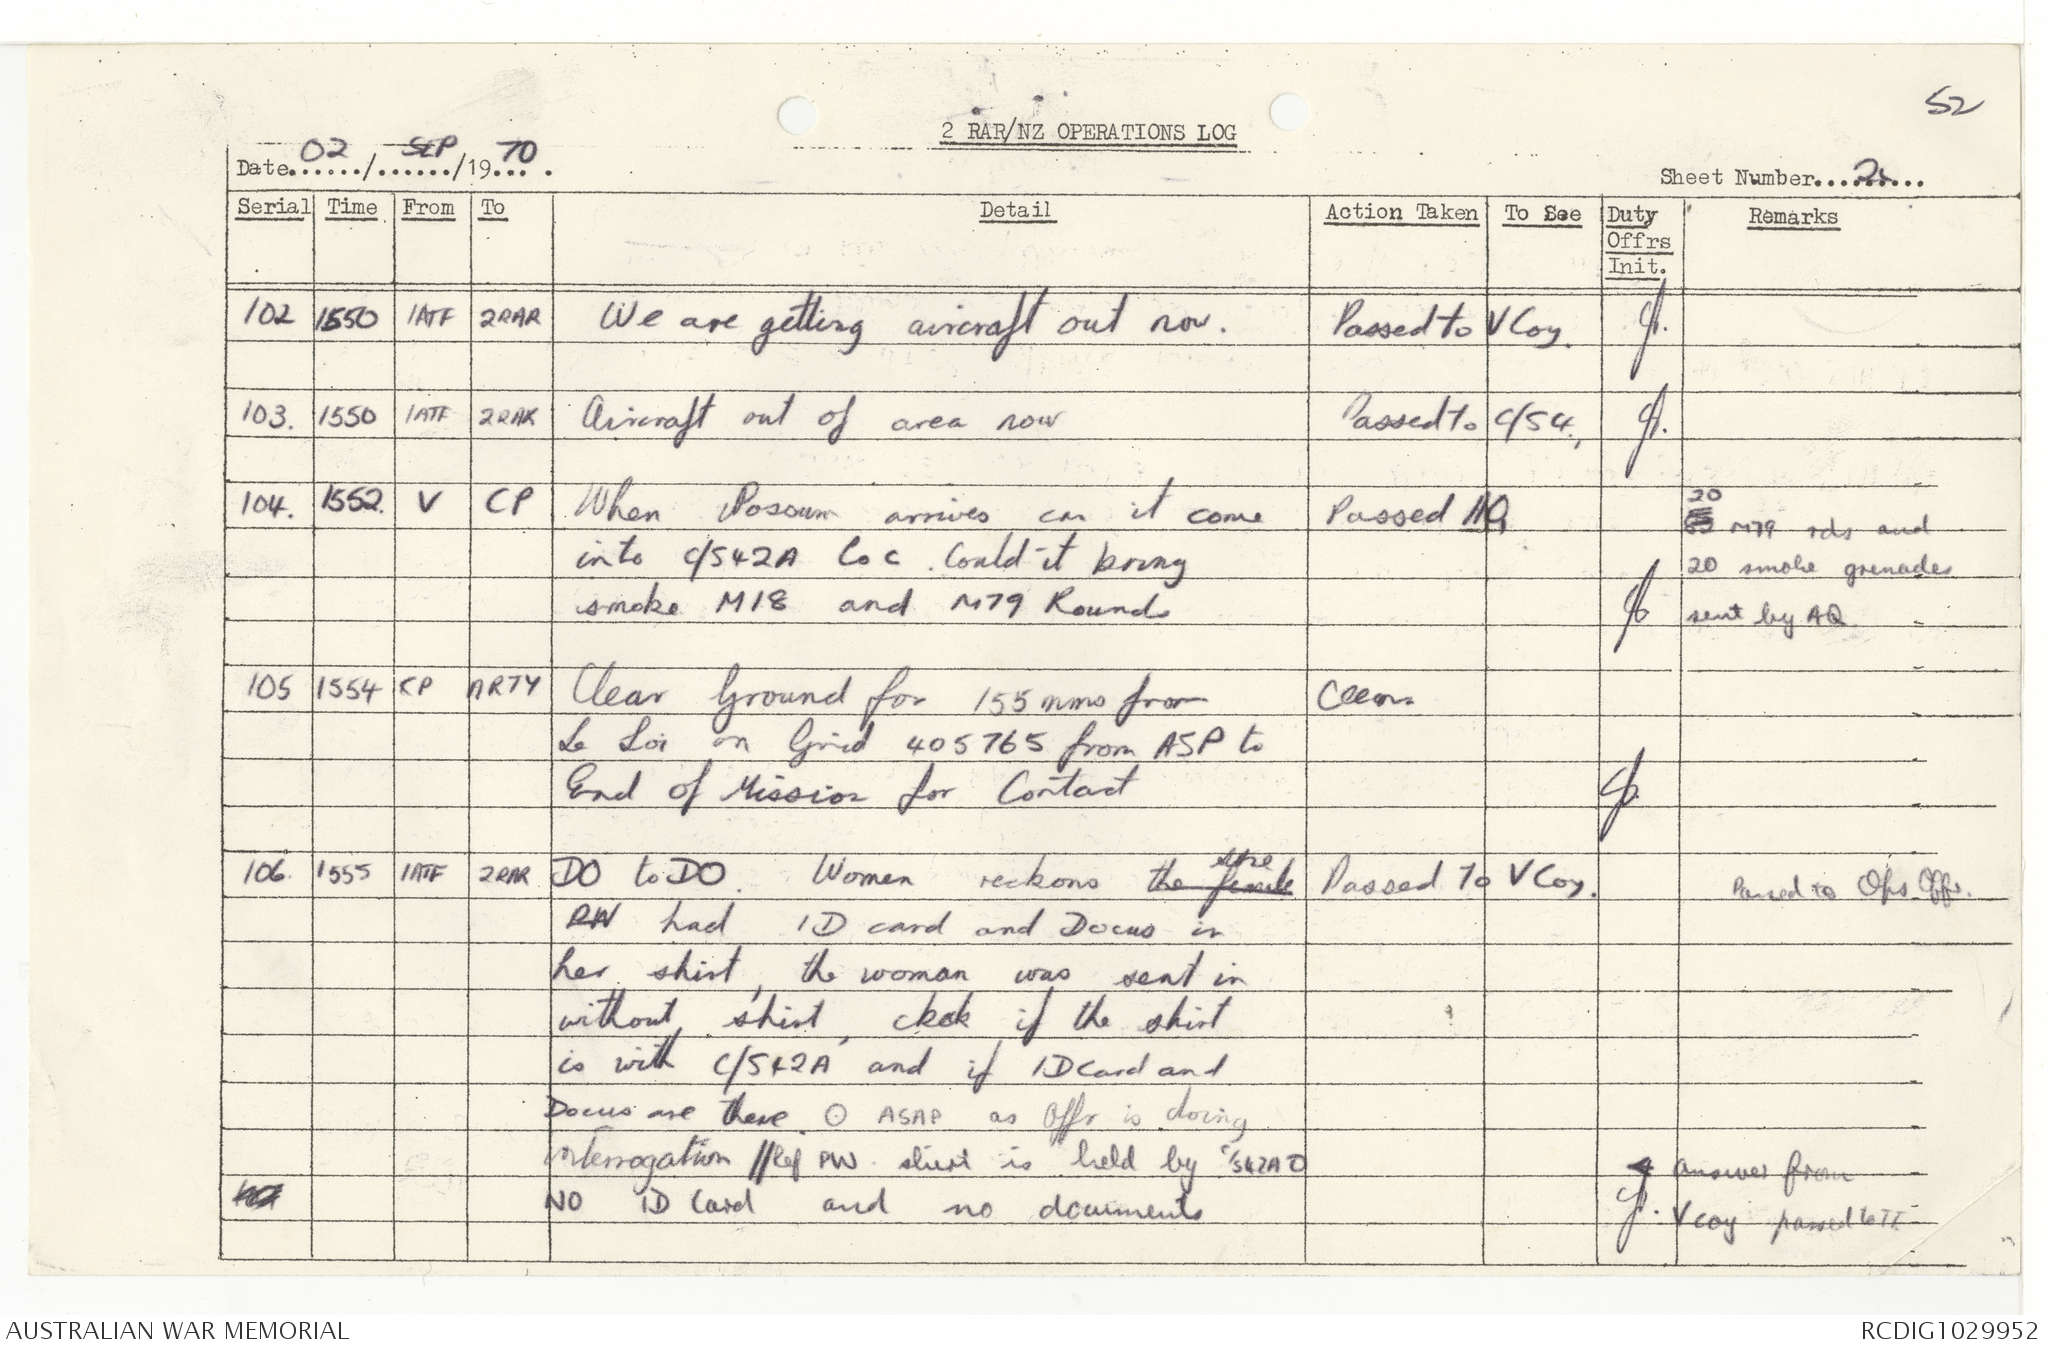 52
2 RAR/NZ OPERATIONS LOG
Date 02 / SEP /19 70.
Sheet Number
Serial Time From To Detail Action Taken To See Duty Offrs Init. Remarks
102 1550 1ATF 2RAR We are getting aircraft out now. Passed to V Coy.
103. 1550 1ATF 2RAR Aircraft out of area now Passed to C/S4.
104. 1552. V CP When Possum arrives can it come Passed 20
into C/S42A Loc. Could it bring M79 rds and
smoke M18 and M79 Rounds 20 smoke grenades
sent by AQ
105 1554 CP ARTY Clear Ground for 155mms from Clear
Le Loi on Grid 405765 from ASP to
End of Mission for Contact
106. 1555 1ATF 2RAR DO to DO. Women reckons the female she Passed To V Coy. Passed to Ops Offr.
PW had ID card and Docus in
her shirt, the woman was sent in
without shirt, check if the shirt
is with C/S42A and if ID Card and
Docus are there. O ASAP as Offr is doing
interrogation // Ref PW shirt is held by C/S42A answer from
NO ID Card and no documents V Coy passed to TF
AUSTRALIAN WAR MEMORIAL
RCDIG1029952